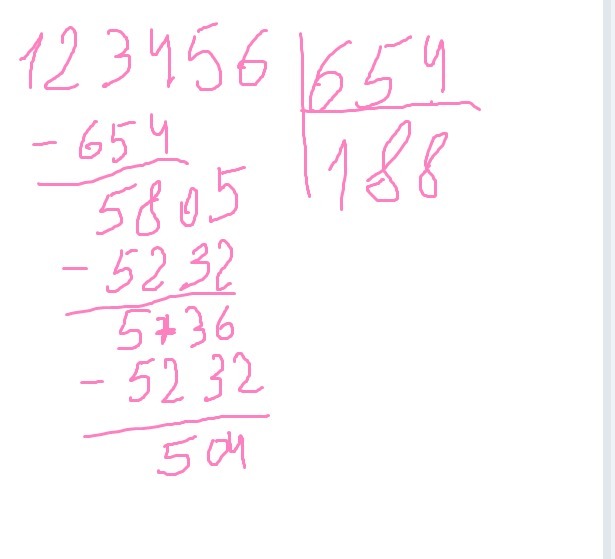 123456 654
- 654 188
5805
- 5232
5736
- 5232
504